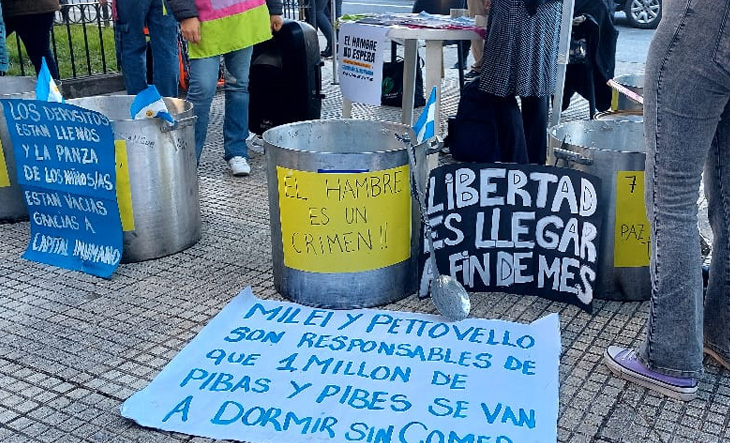 EL HAMBRE
NO ESPERA
LOS DEPOSITOS
ESTAN LLENOS
Y LA PANZA
DE LOS NIÑOS/AS
ESTAN VACIAS
GRACIAS A
CAPITAL INHUMANO
EL HAMBRE
ES UN
CRIMEN!!
LIBERTAD
ES LLEGAR
A FIN DE MES
7
PAZ
MILEI Y PETTOVELLO
SON RESPONSABLES DE
QUE 1 MILLON DE
PIBAS Y PIBES SE VAN
A DORMIR SIN COMER